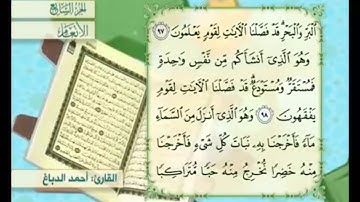 الجزء السابع
الأنعام
ٱلْبَرِّ وَٱلْبَحْرِ قَدْ فَصَّلْنَا ٱلْآيَٰتِ لِقَوْمٍ يَعْلَمُونَ ٩٧
وَهُوَ ٱلَّذِىٓ أَنشَأَكُم مِّن نَّفْسٍ وَٰحِدَةٍ
فَمُسْتَقَرٌّ وَمُسْتَوْدَعٌ قَدْ فَصَّلْنَا ٱلْآيَٰتِ لِقَوْمٍ
يَفْقَهُونَ ٩٨ وَهُوَ ٱلَّذِىٓ أَنزَلَ مِنَ ٱلسَّمَآءِ
مَآءً فَأَخْرَجْنَا بِهِۦ نَبَاتَ كُلِّ شَىْءٍ فَأَخْرَجْنَا
مِنْهُ خَضِرًا نُّخْرِجُ مِنْهُ حَبًّا مُّتَرَاكِبًا
القارئ: أحمد الدباغ